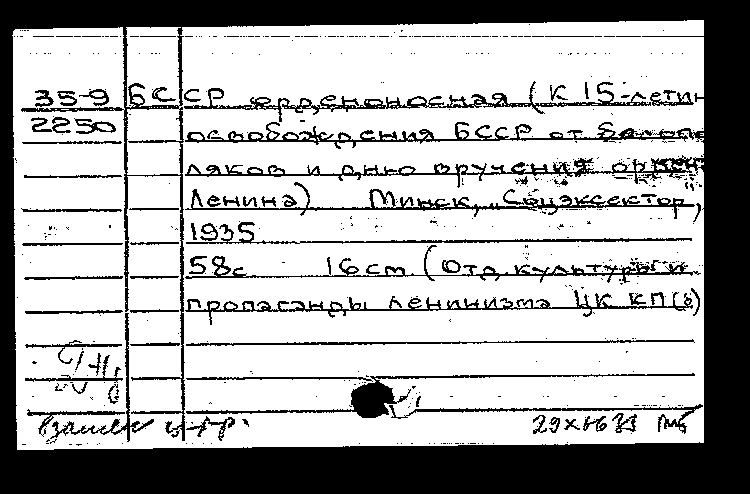 35-9 БССР орденоносная (К 15-летию
2250 освобождения БССР от белопо-
ляков и дню вручения ордена
Ленина) Минск, "Соцэксектор",
1935
58с 16cm (Отд. культуры и
пропаганды ленинизма ЦК КП(б)
взамен
29